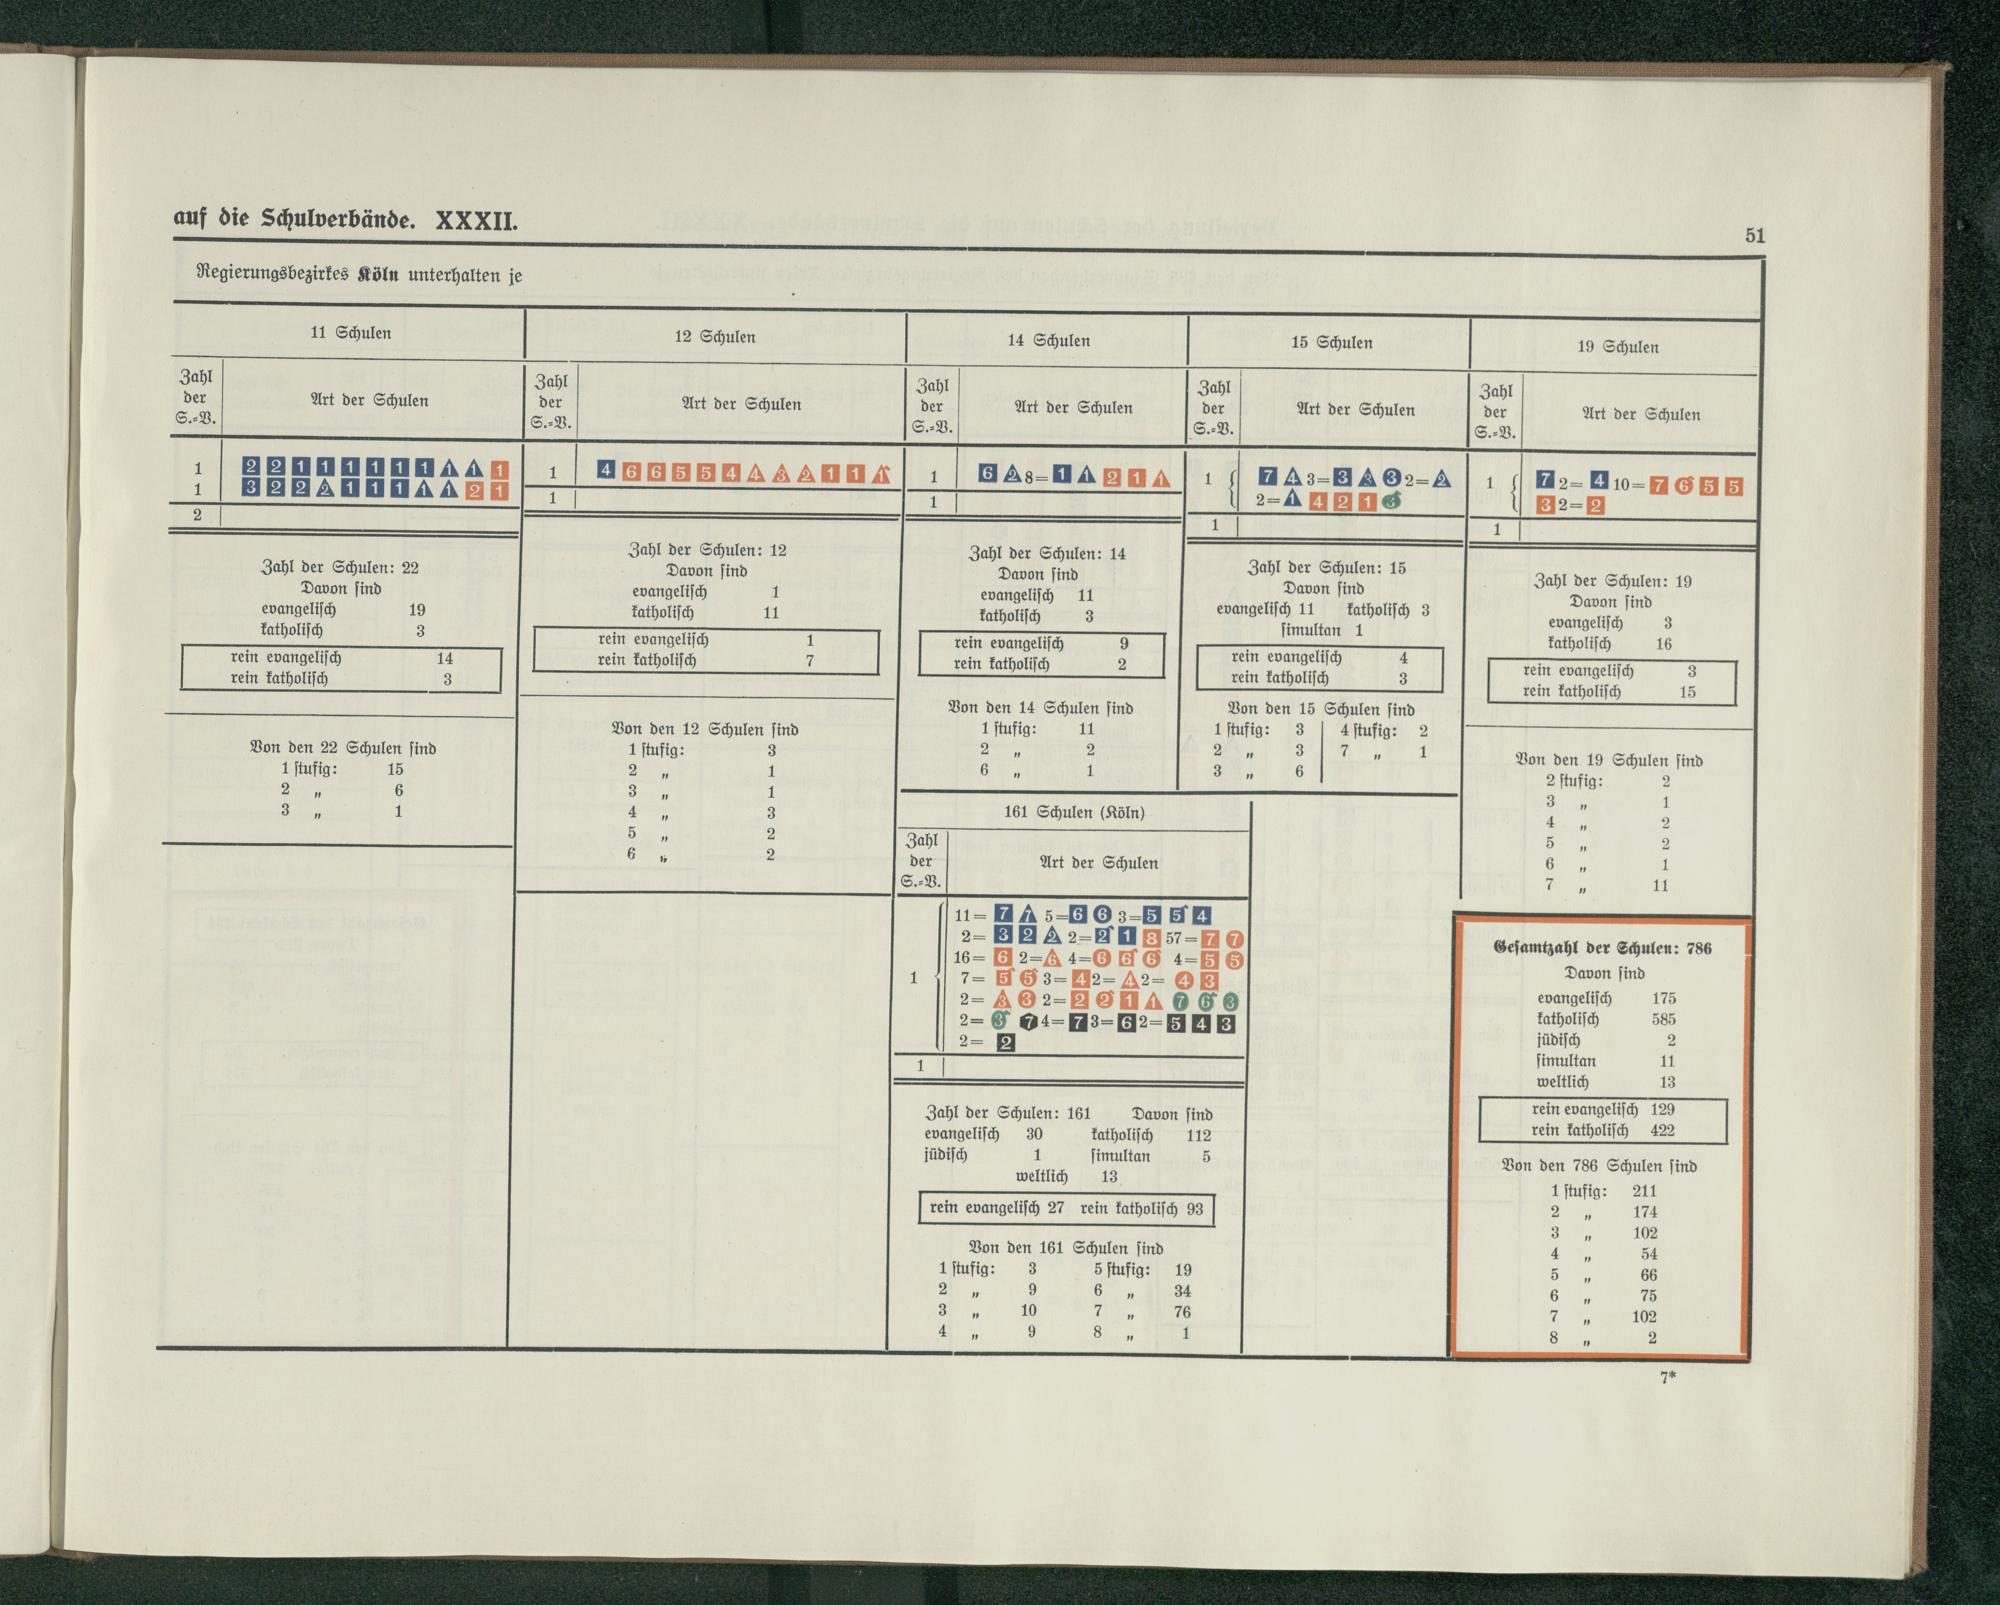 auf die Schulverbände. XXXII.
51
Regierungsbezirkes Köln unterhalten je
11 Schulen
Zahl der S.=V.
Art der Schulen
1 2 2 1 1 1 1 1 1 1 1 1
1 3 2 2 2 1 1 1 1 1 2 1
2
Zahl der Schulen: 22
Davon sind
evangelisch 19
katholisch 3
rein evangelisch 14
rein katholisch 3
Von den 22 Schulen sind
1 stufig: 15
2 „ 6
3 „ 1
12 Schulen
Zahl der S.=V.
Art der Schulen
1 4 6 6 5 5 4 4 3 2 1 1 1
1
Zahl der Schulen: 12
Davon sind
evangelisch 1
katholisch 11
rein evangelisch 1
rein katholisch 7
Von den 12 Schulen sind
1 stufig: 3
2 „ 1
3 „ 1
4 „ 3
5 „ 2
6 „ 2
14 Schulen
Zahl der S.=V.
Art der Schulen
1 6 2 8= 1 1 2 1 1
1
Zahl der Schulen: 14
Davon sind
evangelisch 11
katholisch 3
rein evangelisch 9
rein katholisch 2
Von den 14 Schulen sind
1 stufig: 11
2 „ 2
6 „ 1
15 Schulen
Zahl der S.=V.
Art der Schulen
1 7 4 3= 3 3 3 2= 2
2= 1 4 2 1 3
1
Zahl der Schulen: 15
Davon sind
evangelisch 11 katholisch 3
simultan 1
rein evangelisch 4
rein katholisch 3
Von den 15 Schulen sind
1 stufig: 3 4 stufig: 2
2 „ 3 7 „ 1
3 „ 6
19 Schulen
Zahl der S.=V.
Art der Schulen
1 7 2= 4 10= 7 6 5 5
3 2= 2
1
Zahl der Schulen: 19
Davon sind
evangelisch 3
katholisch 16
rein evangelisch 3
rein katholisch 15
Von den 19 Schulen sind
2 stufig: 2
3 „ 1
4 „ 2
5 „ 2
6 „ 1
7 „ 11
161 Schulen (Köln)
Zahl der S.=V.
Art der Schulen
11= 7 7 5= 6 6 3= 5 5 4
2= 3 2 2 2= 2 1 8 57= 7 7
16= 6 2= 6 4= 6 6 6 4= 5 5
1 7= 5 5 3= 4 2= 4 2= 4 3
2= 3 3 2= 2 2 1 1 7 6 3
2= 3 7 4= 7 3= 6 2= 5 4 3
2= 2
1
Zahl der Schulen: 161 Davon sind
evangelisch 30 katholisch 112
jüdisch 1 simultan 5
weltlich 13
rein evangelisch 27 rein katholisch 93
Von den 161 Schulen sind
1 stufig: 3 5 stufig: 19
2 „ 9 6 „ 34
3 „ 10 7 „ 76
4 „ 9 8 „ 1
Gesamtzahl der Schulen: 786
Davon sind
evangelisch 175
katholisch 585
jüdisch 2
simultan 11
weltlich 13
rein evangelisch 129
rein katholisch 422
Von den 786 Schulen sind
1 stufig: 211
2 „ 174
3 „ 102
4 „ 54
5 „ 66
6 „ 75
7 „ 102
8 „ 2
7*